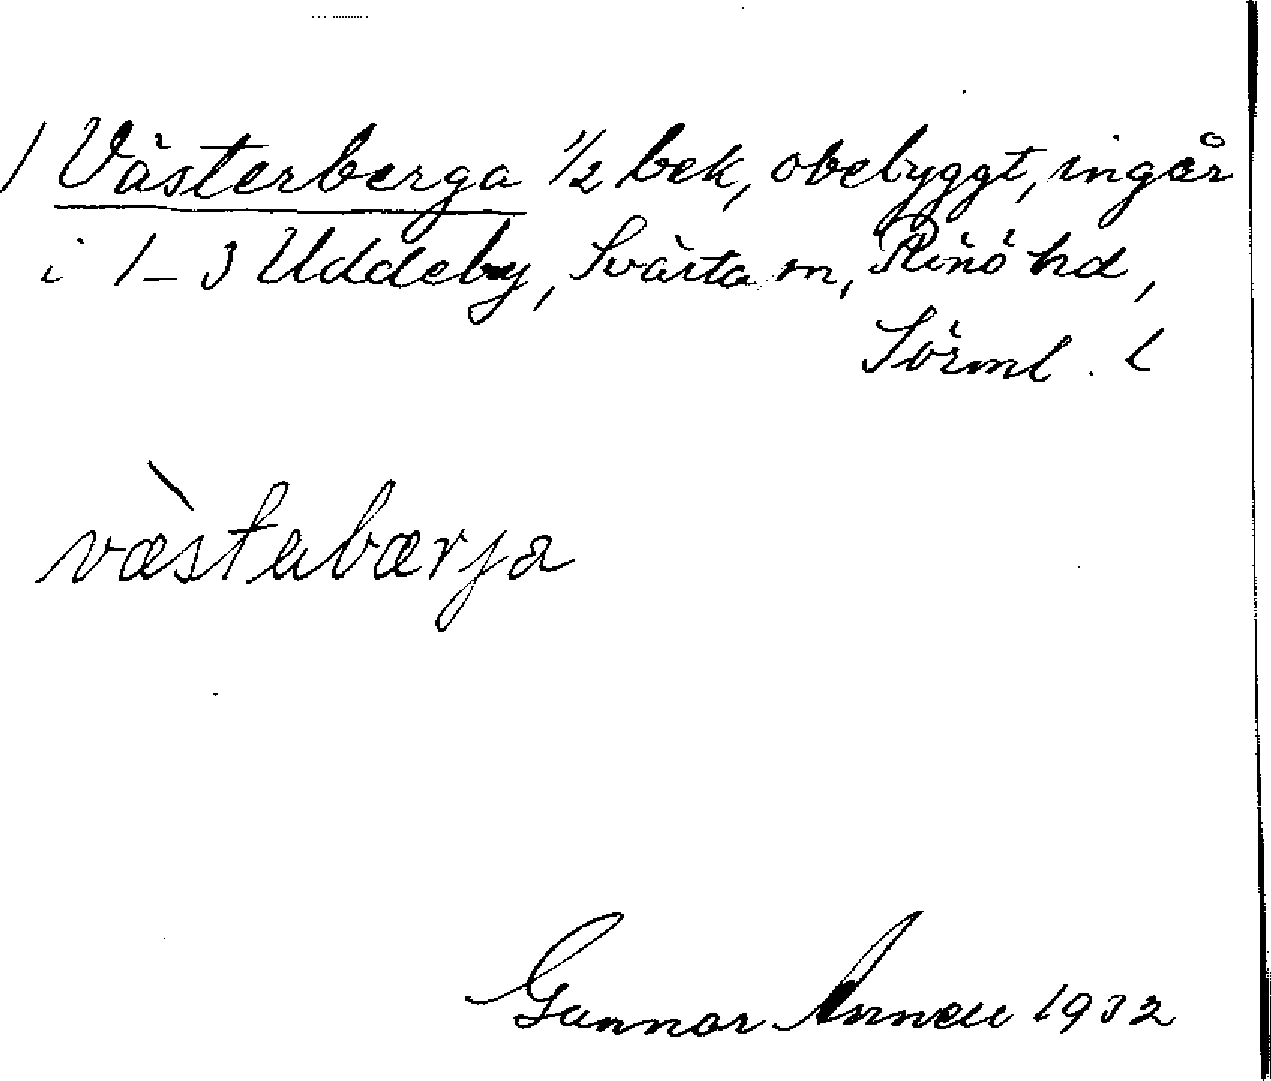 / Västerberga 1/2 bek, obebyggt, ingår
i 1-3 Uddeby, Svärta sn, Rönö hd,
Sörml. l
væ̀stabærja
Gunnar Annell 1932